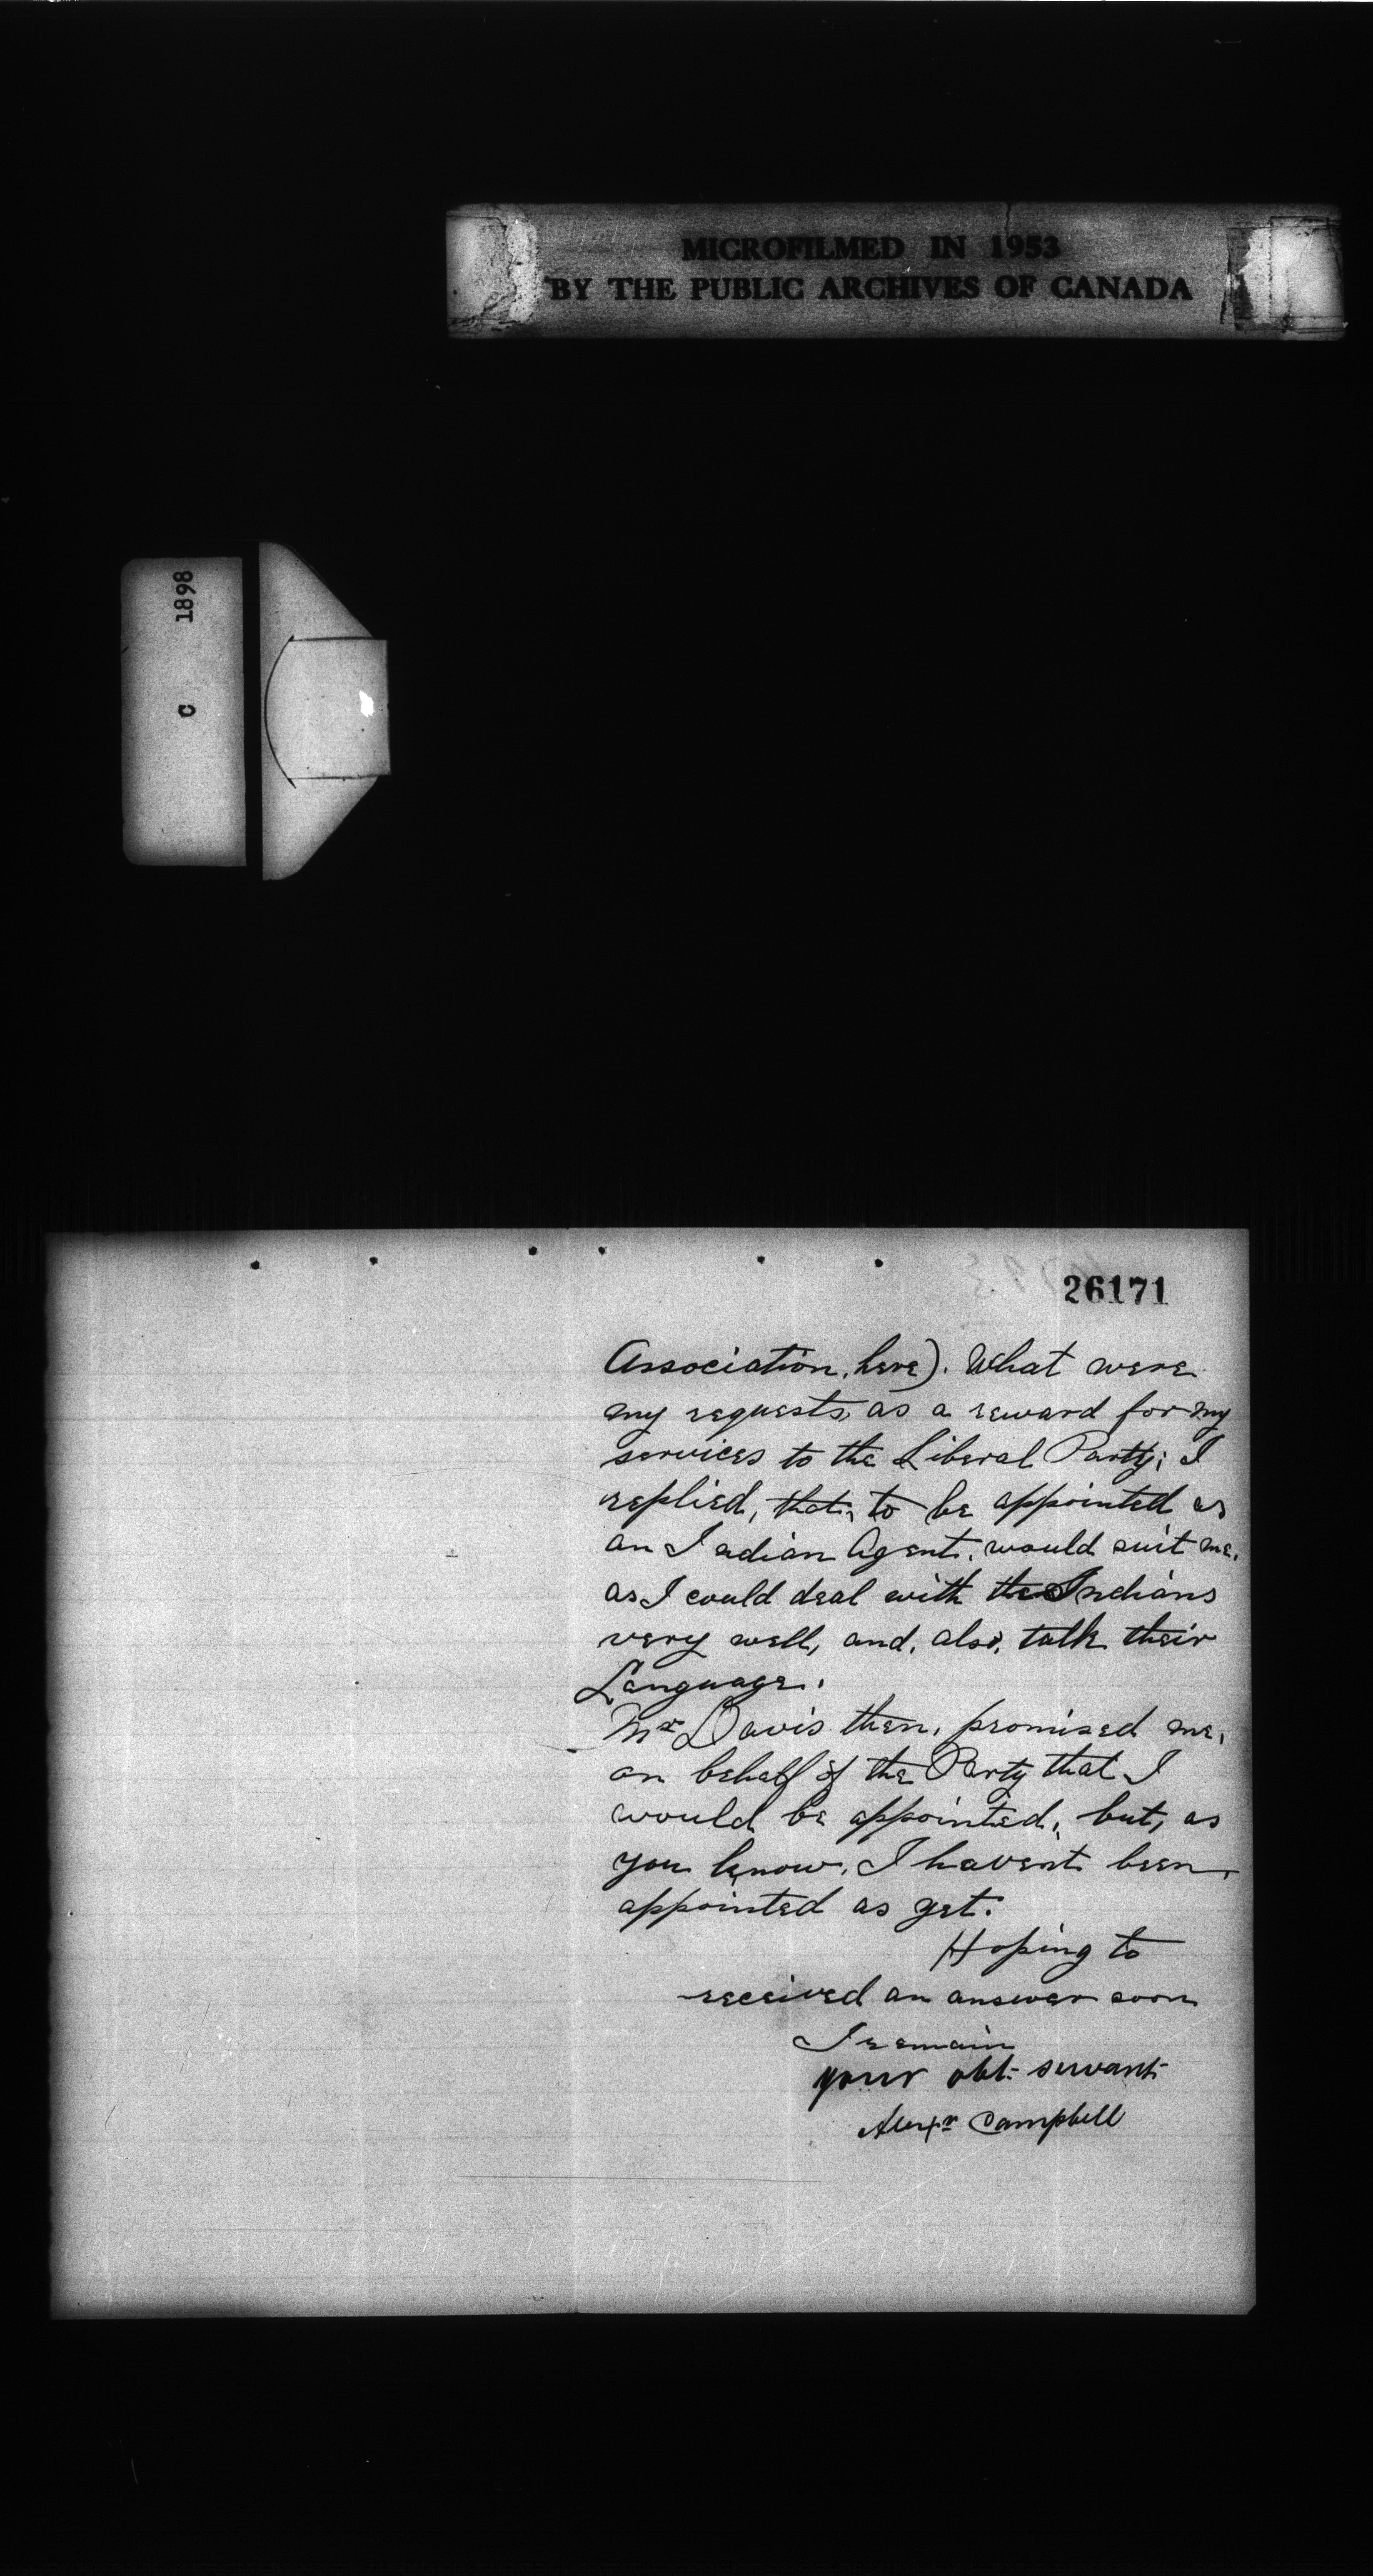 MICROFILMED IN 1953
BY THE PUBLIC ARCHIVES OF CANADA
C 1898
26171
Association, here). What were
my requests, as a reward for my
services to the Liberal Party; I
replied, that, to be appointed as
an Indian Agent, would suit me,
as I could deal with the Indians
very well, and, also, talk their
Language.
Mr Davis then, promised me,
on behalf of the Party that I
would be appointed, but, as
you know, I havent been,
appointed as yet.
Hoping to
received an answer soon
I remain
your obt. servant
Alexr Campbell